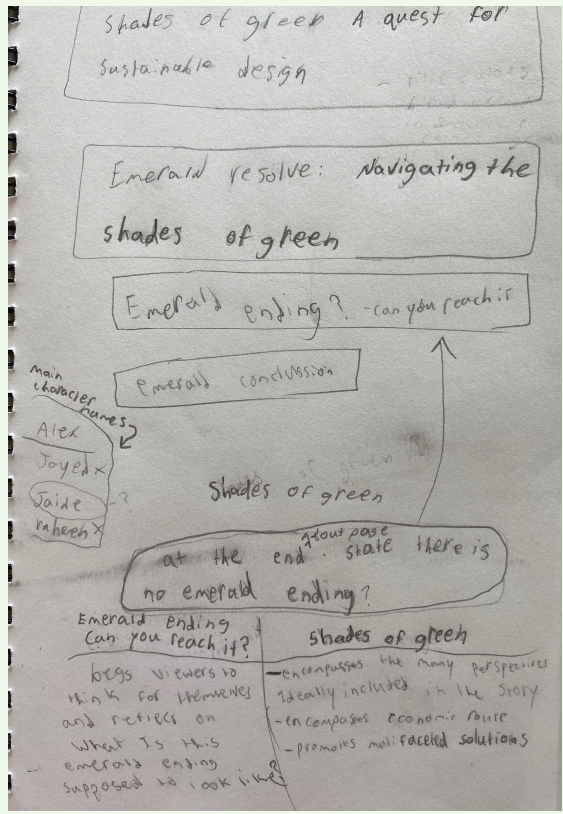 Shades of green A quest for
sustainable design
Emerald resolve: Navigating the
shades of green
Emerald ending? -can you reach it
emerald conclussion
Main
character
names
Alex
Jayed x
Jaide -?
raheeh x
Shades of green
about page
at the end . state there is
no emerald ending?
Emerald Ending
Can you reach it?
begs viewers to
think for themselves
and reflect on
what Is this
emerald ending
supposed to look like?
Shades of green
-encompasses the many perspectives
Ideally included in the story
-encompases economic
-promotes multifaceled solutions